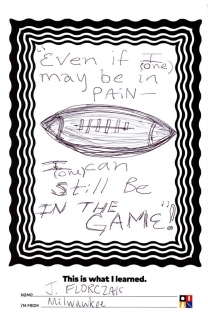 "Even if I
(one)
may be in
PAIN—
I can
(one)
Still Be
IN THE
GAME"!
This is what I learned.
NAME J. FLORCZAK
I'M FROM Milwaukee